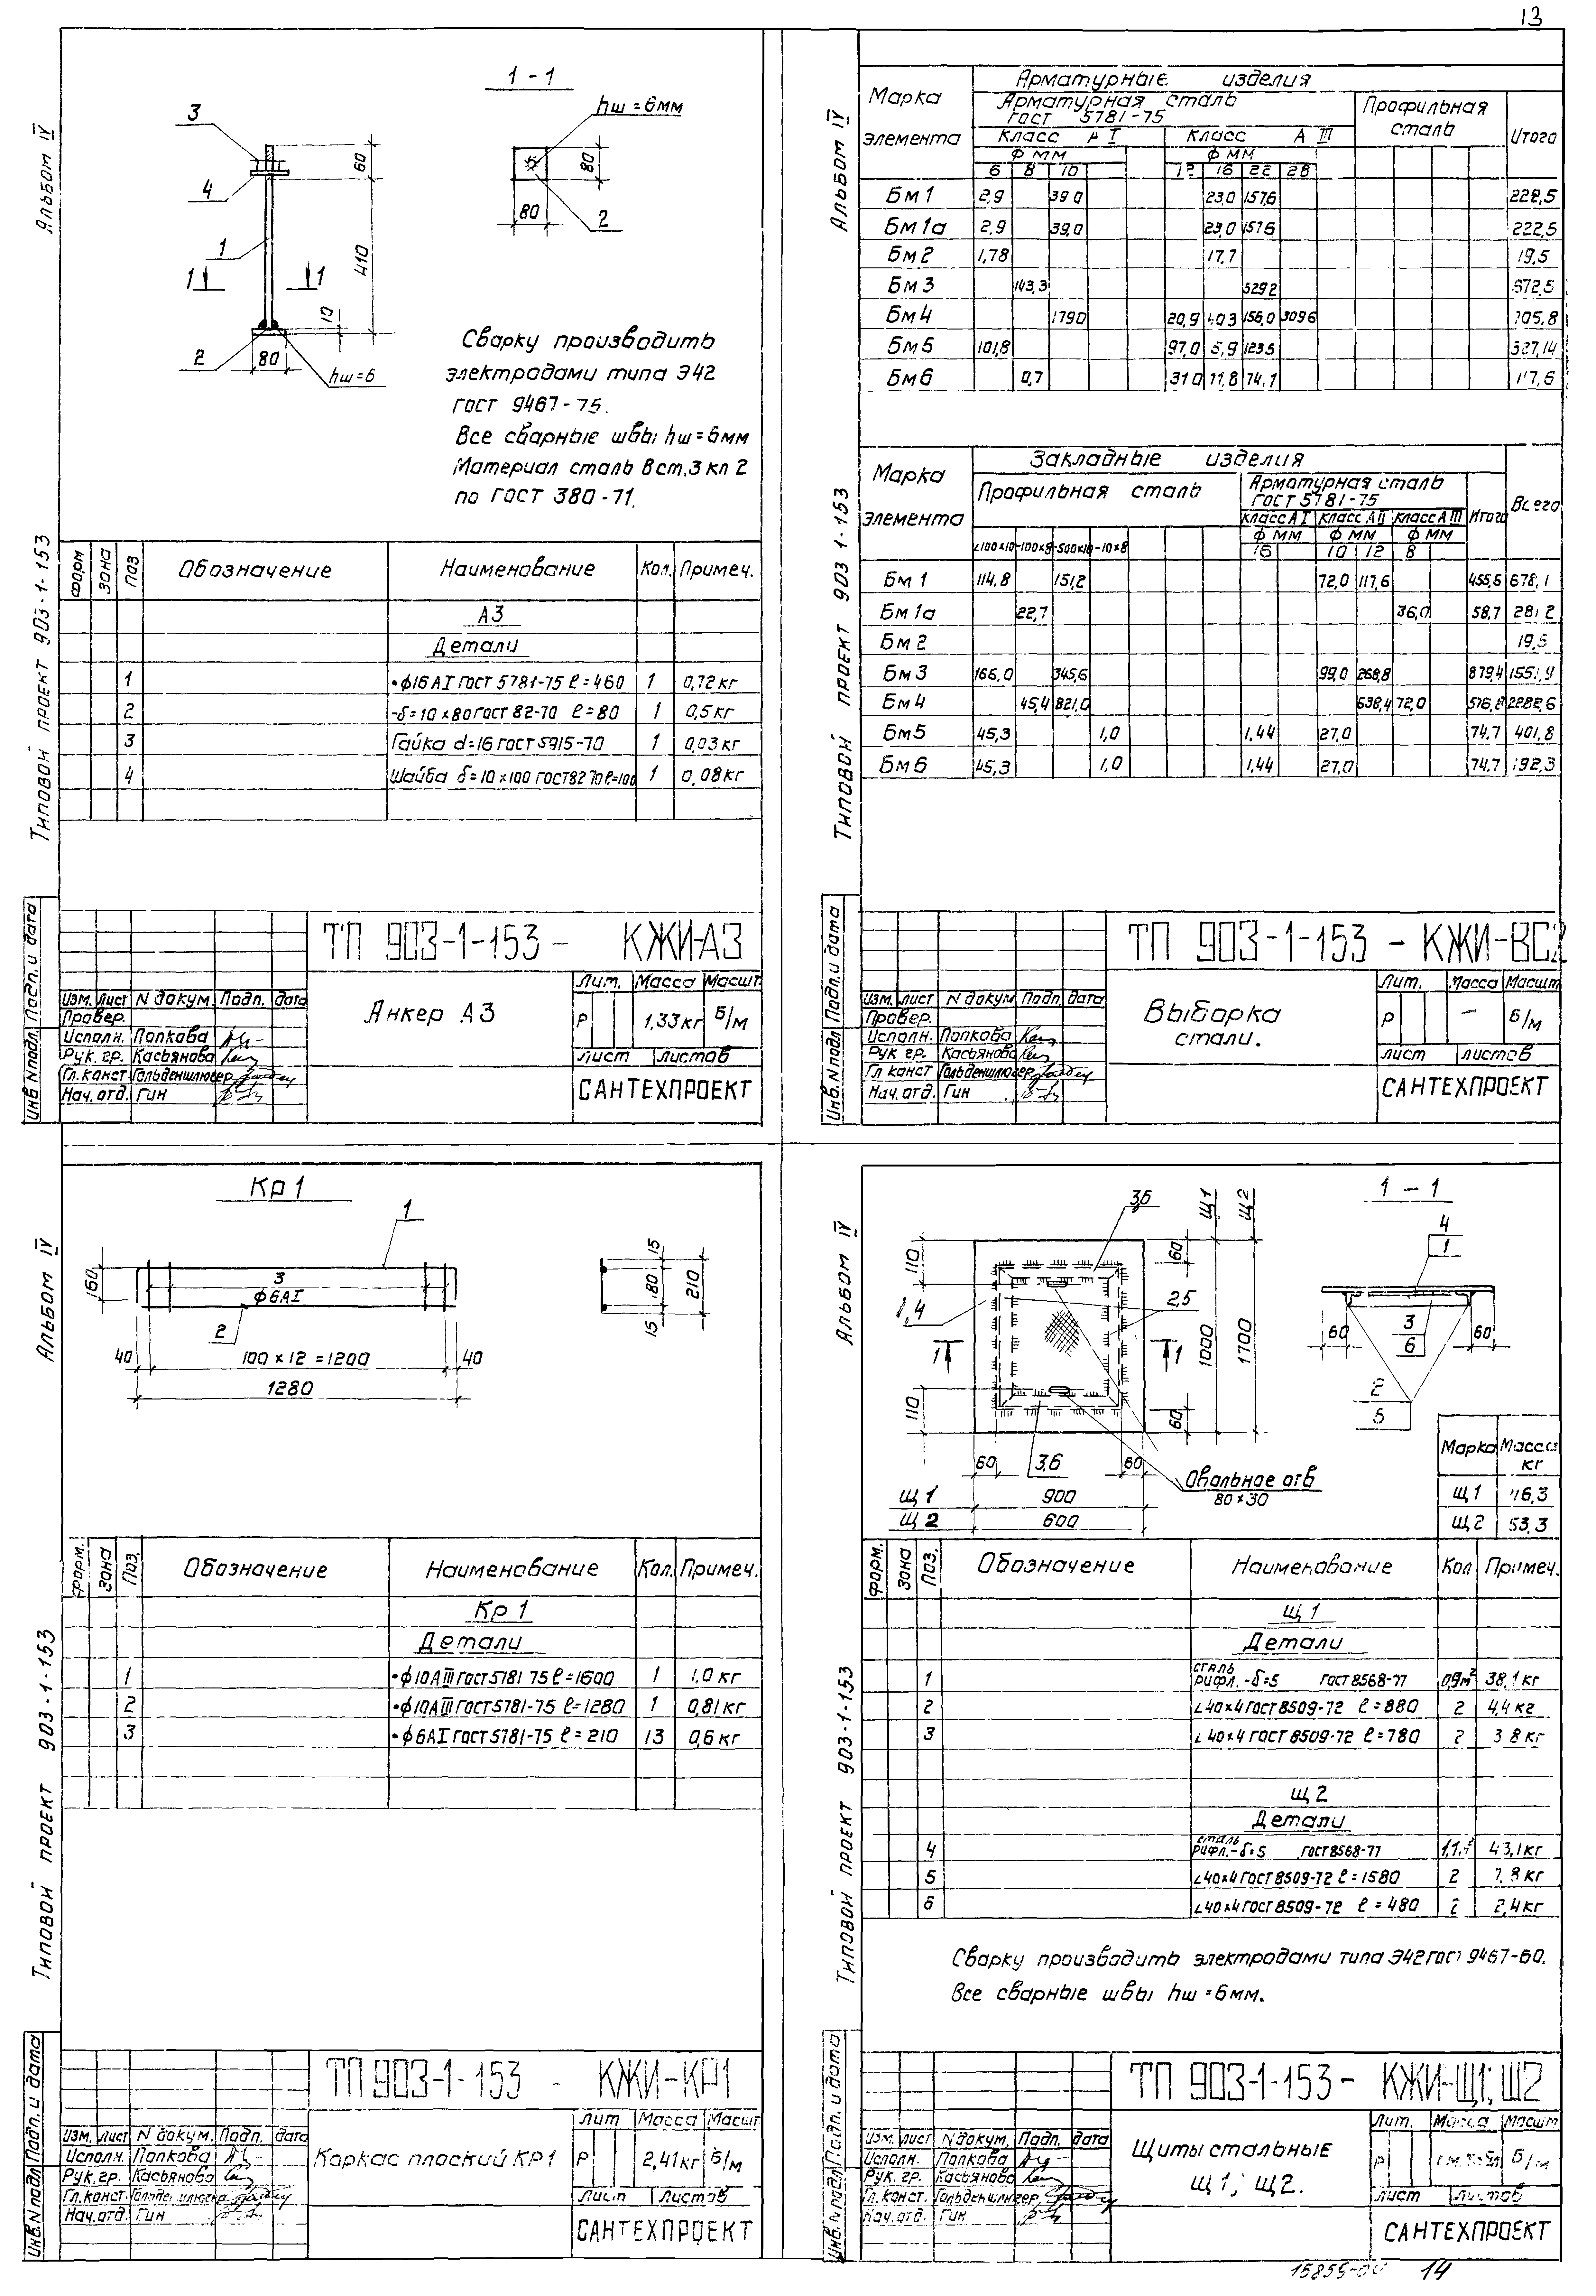 13
Альбом IV
1-1
3
hш=6мм
60
4
80
80
2
1
410
1
1
10
2
80
hш=6
Сварку производить
электродами типа Э42
ГОСТ 9467-75.
Все сварные швы hш=6мм
Материал сталь Вст.3 кп 2
по ГОСТ 380-71.
Типовой проект 903-1-153
Форм Зона Поз Обозначение Наименование Кол. Примеч.
А3
Детали
1 •ф16АI ГОСТ 5781-75 ℓ=460 1 0,72кг
2 -δ=10×80 ГОСТ 82-70 ℓ=80 1 0,5кг
3 Гайка d=16 ГОСТ 5915-70 1 0,03кг
4 Шайба δ=10×100 ГОСТ 82 70 ℓ=100 1 0,08кг
Инв.Nподл. Подп.и дата
ТП 903-1-153 - КЖИ-А3
Изм. Лист N докум. Подп. дата
Провер.
Исполн. Попкова
Рук. гр. Касьянова
Гл. конст Гольденшлюгер
Нач. отд. Гин
Анкер А3
Лит. Масса Масшт
Р 1,33кг Б/м
Лист Листов
САНТЕХПРОЕКТ
Альбом IV
Марка элемента
Арматурные изделия
Арматурная сталь
ГОСТ 5781-75
Профильная сталь
Итого
Класс А I Класс А III
Ф мм Ф мм
6 8 10 12 16 22 28
Бм1 2,9 39 0 23,0 157,6 222,5
Бм1а 2,9 39,0 23,0 157,6 222,5
Бм2 1,78 17,7 19,5
Бм3 143,3 529 2 672,5
Бм4 179 0 20,9 40 3 156,0 309 6 705,8
Бм5 101,8 97,0 5,9 123 5 327,14
Бм6 0,7 31 0 11,8 74,1 117,6
Типовой проект 903 1-153
Марка элемента
Закладные изделия
Профильная сталь
Арматурная сталь
ГОСТ 5781-75
Итого Всего
Класс А I Класс А II Класс А III
Ф мм Ф мм Ф мм
∠100×10 -100×8 -500×10 -10×8 16 10 12 8
Бм1 114,8 151,2 72,0 117,6 455,6 678,1
Бм1а 22,7 36,0 58,7 281 2
Бм2 19,5
Бм3 166,0 345,6 99,0 268,8 879,4 1551,9
Бм4 45,4 821,0 638,4 72,0 2282,6
Бм5 45,3 1,0 1,44 27,0 74,7 401,8
Бм6 45,3 1,0 1,44 27,0 74,7 192,3
Инв.Nподл. Подп. и дата
ТП 903-1-153 - КЖИ-ВС2
Изм. Лист N докум Подп. дата
Провер.
Исполн. Попкова
Рук гр. Касьянова
Гл конст Гольденшлюгер
Нач. отд. Гин
Выборка
стали.
Лит. Масса Масшт
Р - Б/м
Лист Листов
САНТЕХПРОЕКТ
Альбом IV
Кр1
1
160
3
ф6АI
2
40
100×12=1200
40
1280
15
180
15
210
Типовой проект 903-1-153
Форм. Зона Поз. Обозначение Наименование Кол. Примеч.
Кр1
Детали
1 •ф10АIII ГОСТ 5781 75 ℓ=1600 1 1,0 кг
2 •ф10АIII ГОСТ 5781-75 ℓ=1280 1 0,81кг
3 •ф6АI ГОСТ 5781-75 ℓ=210 13 0,6кг
Инв.Nподл Подп. и дата
ТП 903-1-153 - КЖИ-КР1
Изм. Лист N докум. Подп. дата
Исполн. Попкова
Рук. гр. Касьянова
Гл. конст. Гольденшлюгер
Нач. отд. Гин
Каркас плоский КР1
Лит Масса Масшт
Р 2,41кг Б/м
Лист Листов
САНТЕХПРОЕКТ
Альбом IV
3,6
Щ1
Щ2
1-1
110
60
4
1
1,4
2,5
1
1
1000
1700
60
3
6
60
110
60
2
5
60
3,6
60
Овальное отв
80×30
Щ1 900
Щ2 600
Марка Масса кг
Щ1 46,3
Щ2 53,3
Типовой проект 903-1-153
Форм. Зона Поз. Обозначение Наименование Кол Примеч.
Щ1
Детали
1 сталь рифл. -δ=5 ГОСТ 8568-77 0,9м² 38,1кг
2 ∠40×4 ГОСТ 8509-72 ℓ=880 2 4,4кг
3 ∠40×4 ГОСТ 8509-72 ℓ=780 2 3 8кг
Щ2
Детали
4 сталь рифл. -δ=5 ГОСТ 8568-77 43,1кг
5 ∠40×4 ГОСТ 8509-72 ℓ=1580 2 7,8кг
6 ∠40×4 ГОСТ 8509-72 ℓ=480 2 2,4кг
Сварку производить электродами типа Э42 ГОСТ 9467-60.
Все сварные швы hш=6мм.
Инв.Nподл Подп. и дата
ТП 903-1-153- КЖИ-Щ1; Щ2
Изм. Лист N докум. Подп. дата
Исполн. Попкова
Рук. гр. Касьянова
Гл. конст. Гольденшлюгер.
Нач. отд. Гин
Щиты стальные
Щ1; Щ2.
Лит. Масса Масшт
Р см. табл Б/м
Лист Листов
САНТЕХПРОЕКТ
14